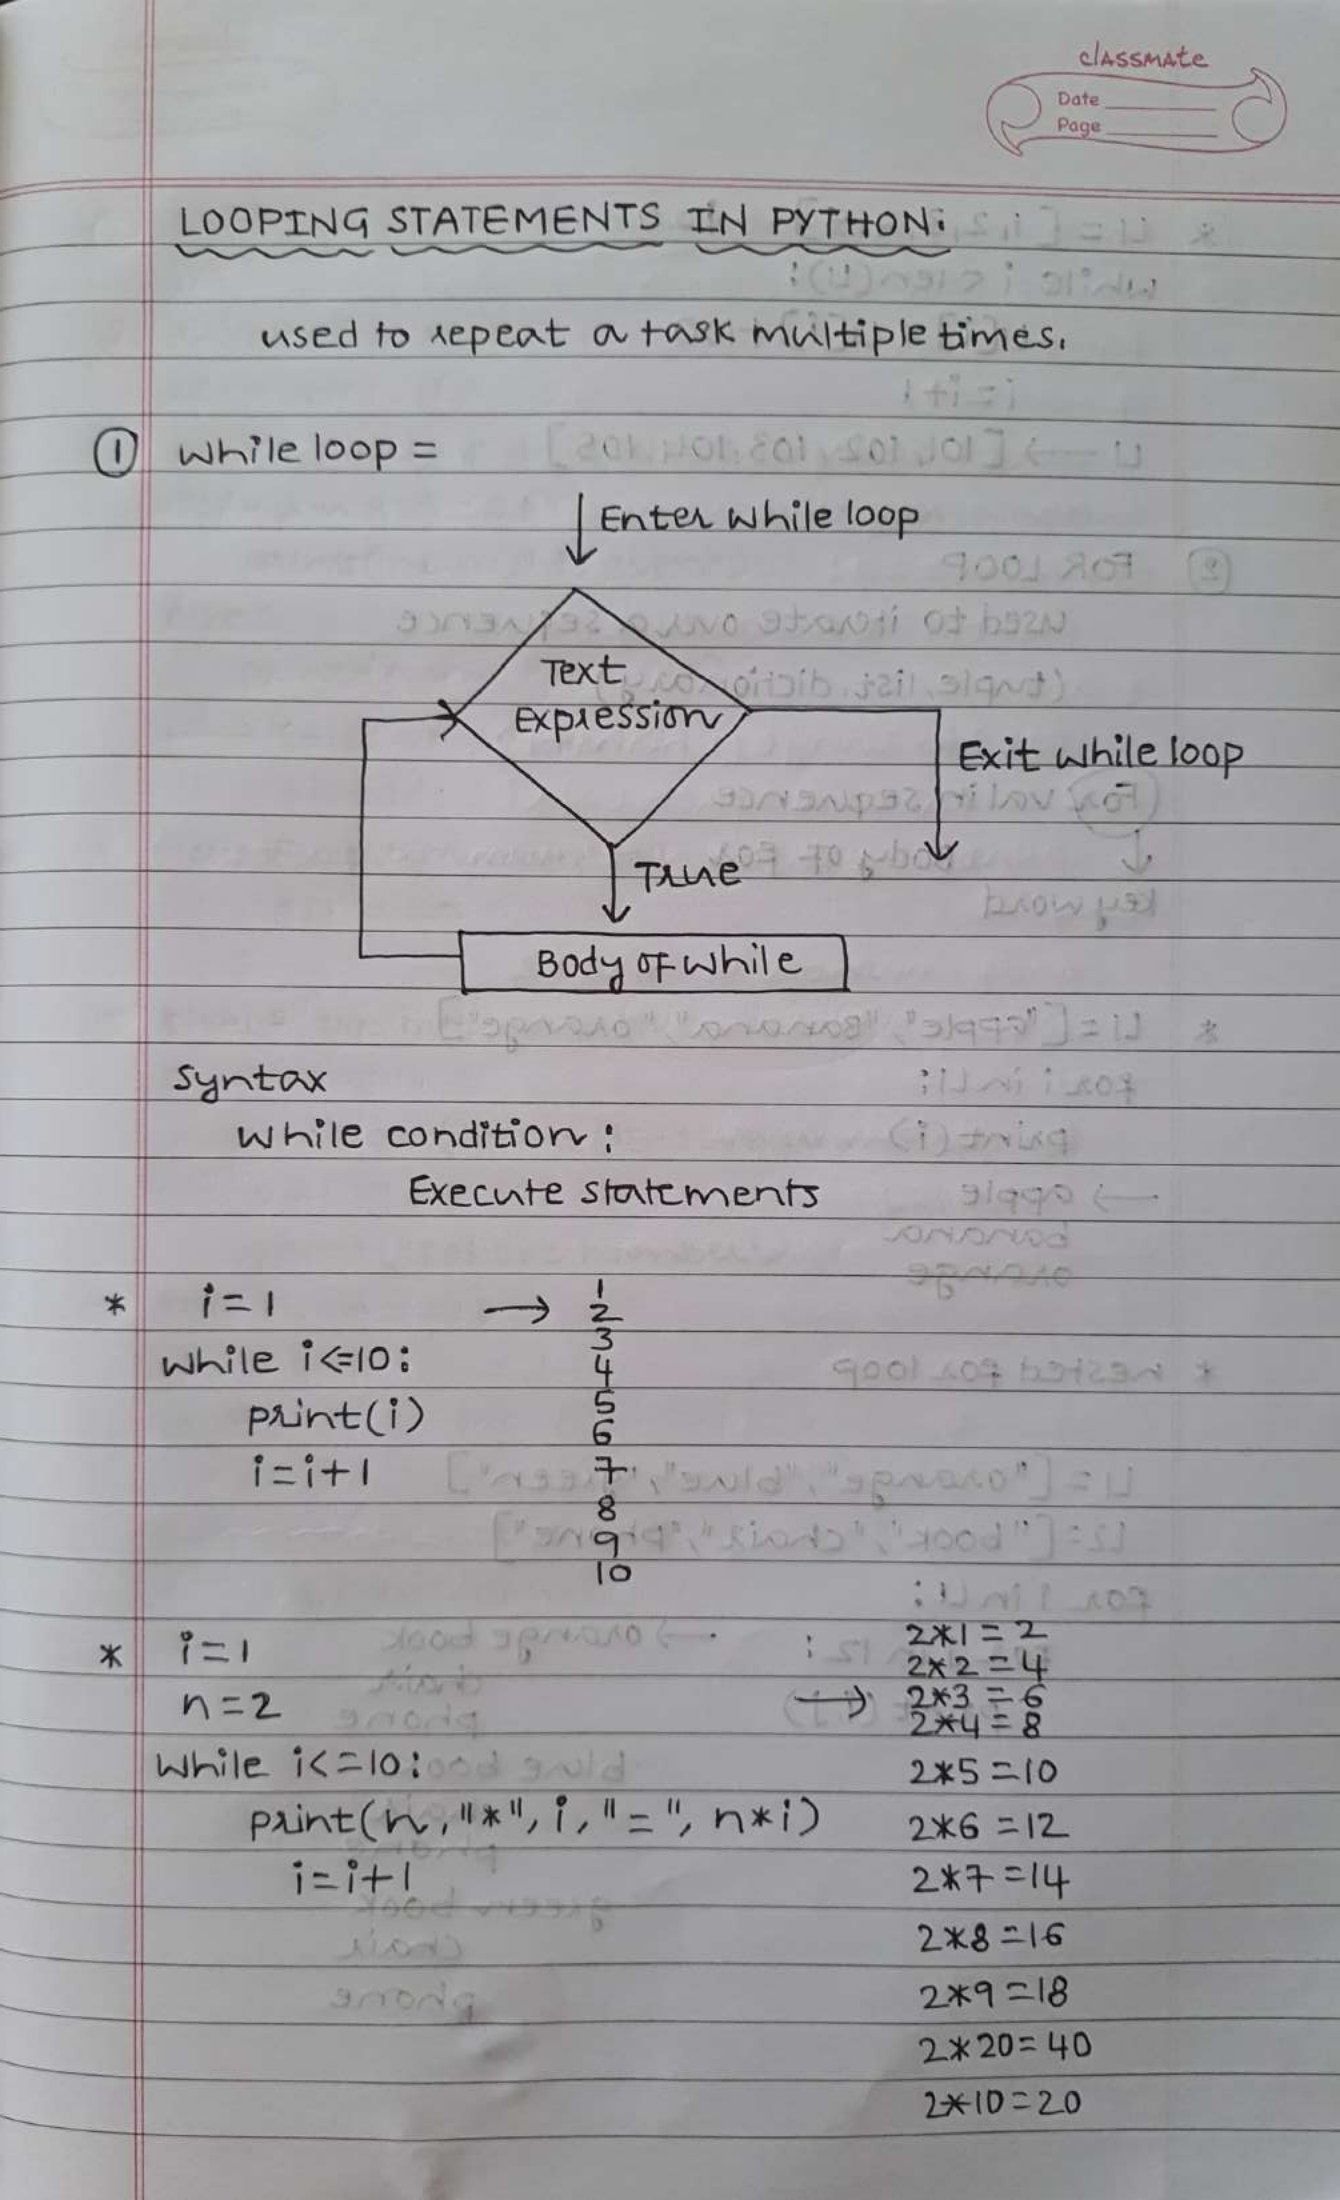 classmate
Date
Page
LOOPING STATEMENTS IN PYTHON:
used to repeat a task multiple times.
① while loop =
Enter while loop
Text
Expression
Exit while loop
True
Body of while
Syntax
while condition:
Execute statements
* i=1 → 1
2
3
while i<=10:
4
print(i) 5
6
i=i+1 7
8
9
10
* i=1 2*1=2
2*2=4
n=2 → 2*3=6
2*4=8
while i<=10: 2*5=10
print(n,"*",i,"=",n*i) 2*6=12
i=i+1 2*7=14
2*8=16
2*9=18
2*20=40
2*10=20